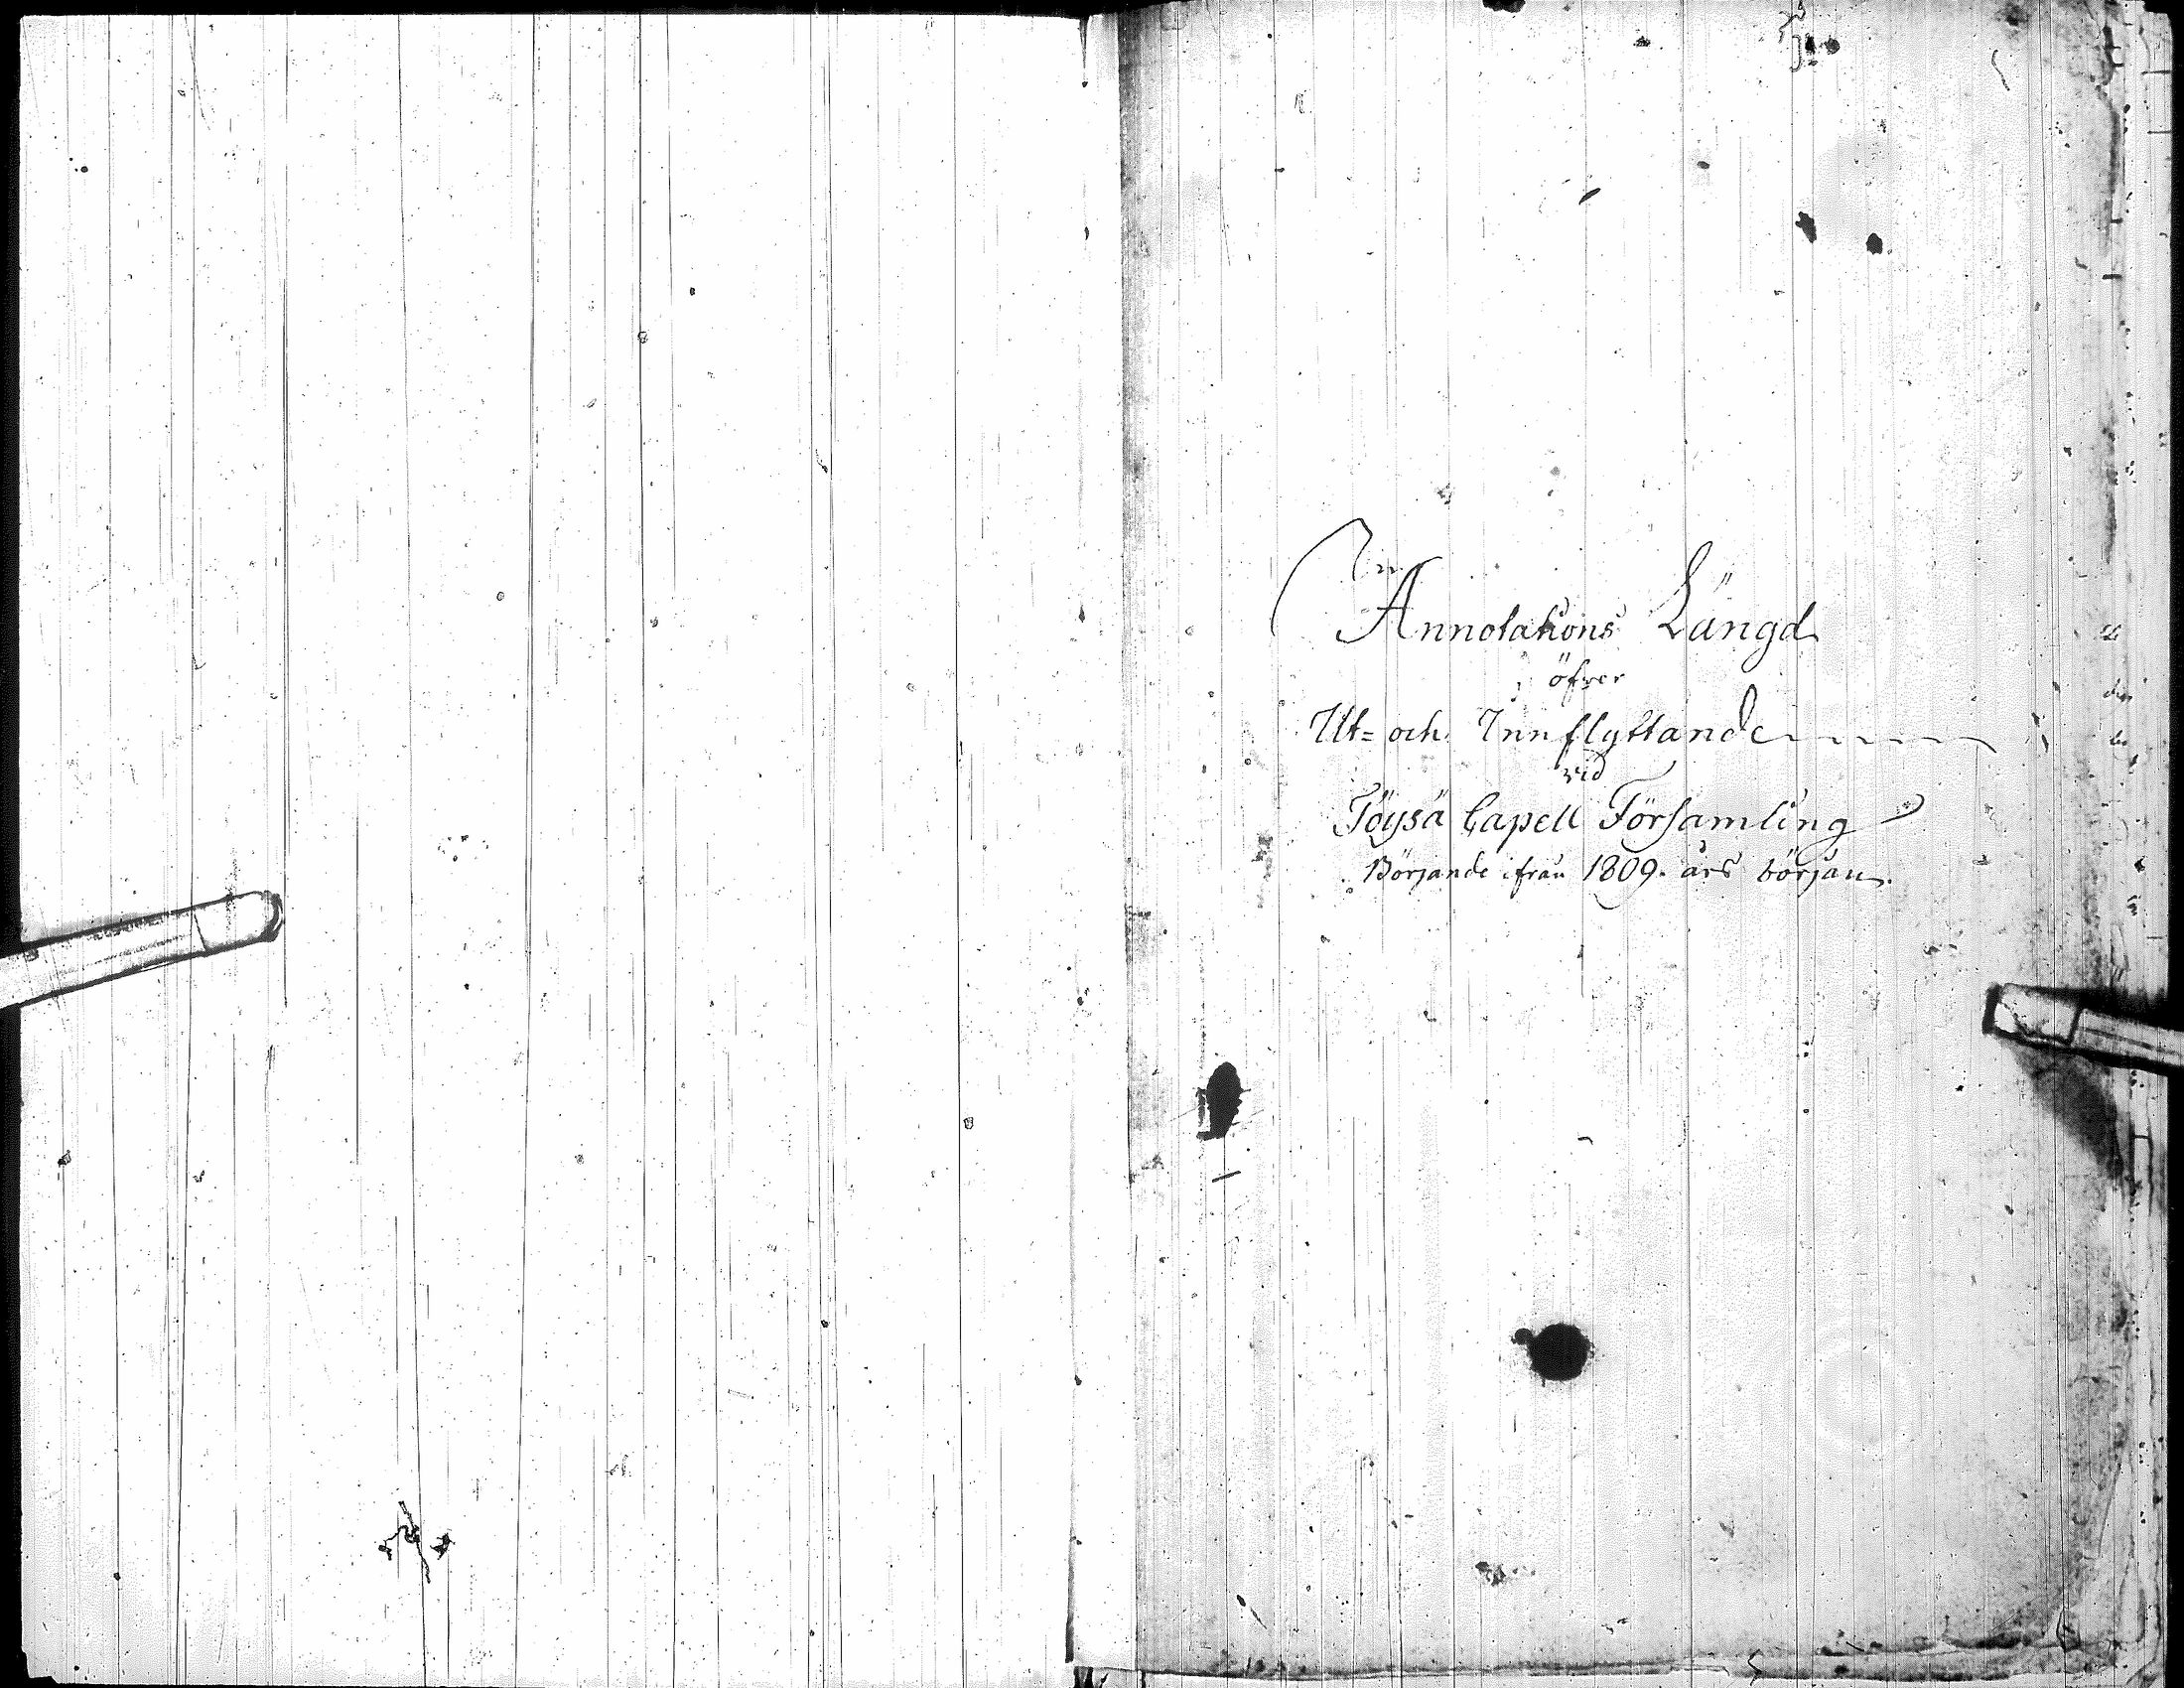 Annotations Längd
öfver
Ut= och Innflyttande
vid
Töysä Capell Församling
Börjande ifrån 1809. års början.